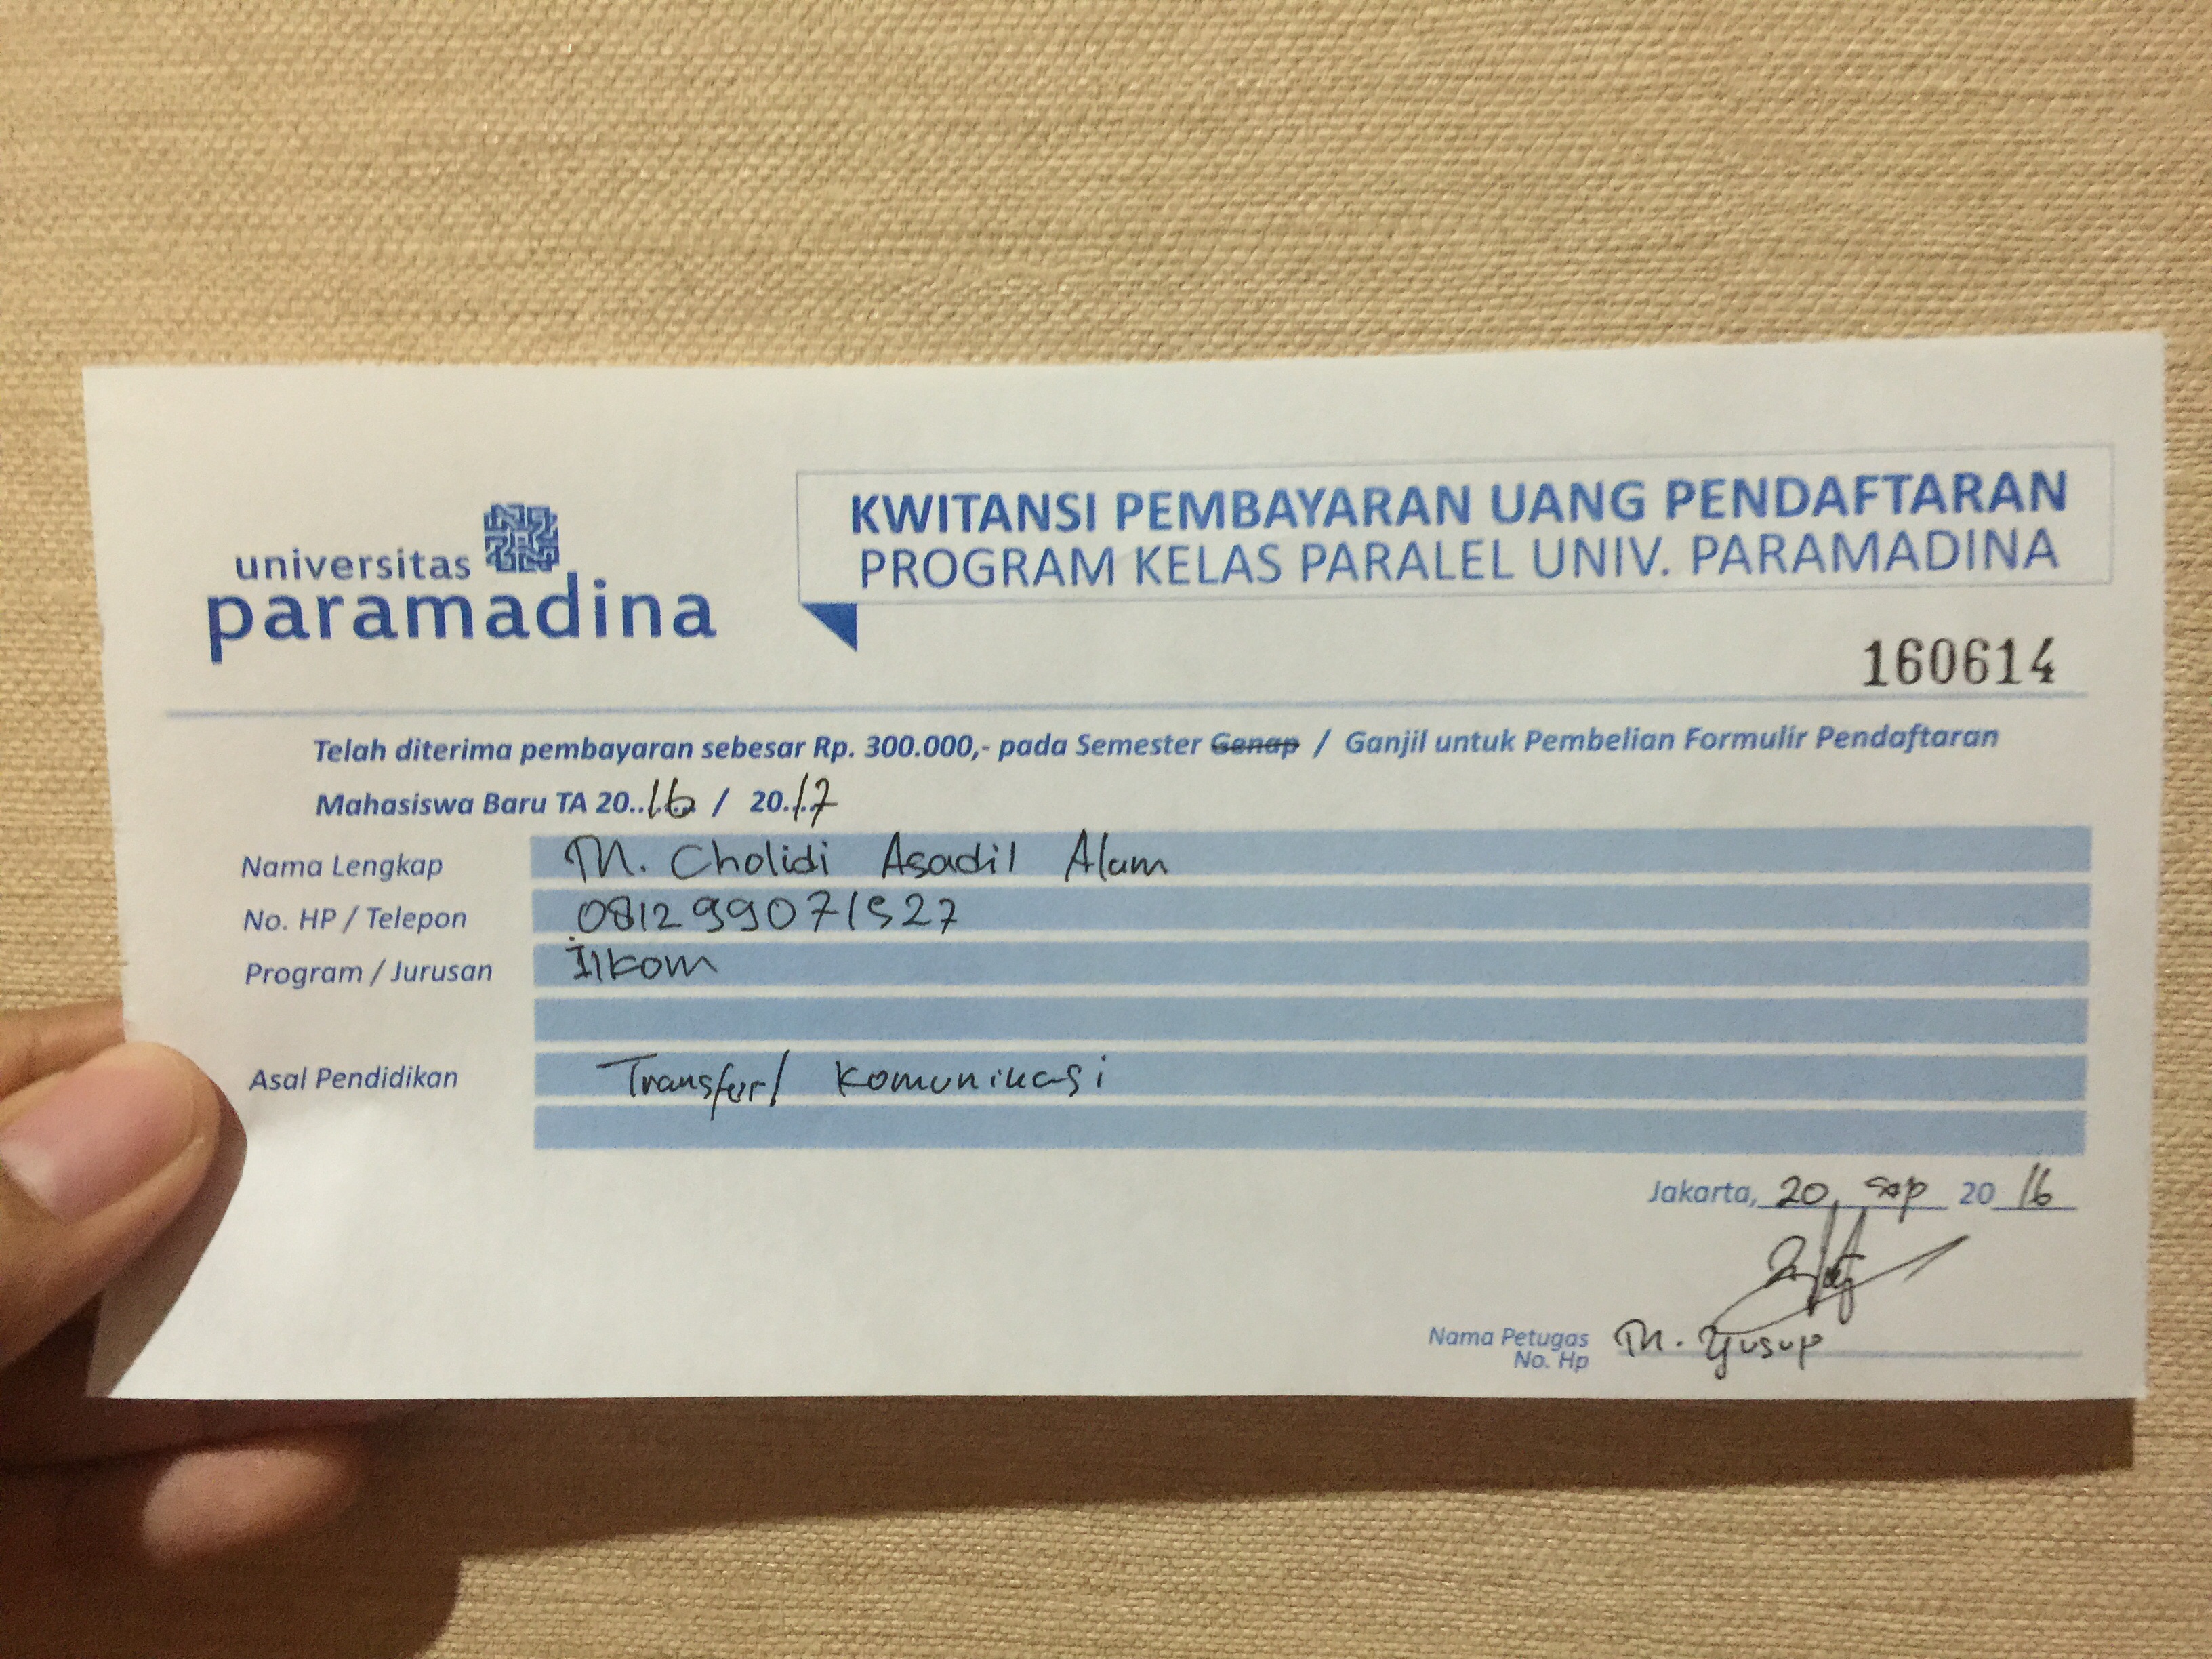 universitas
paramadina
KWITANSI PEMBAYARAN UANG PENDAFTARAN
PROGRAM KELAS PARALEL UNIV. PARAMADINA
160614
Telah diterima pembayaran sebesar Rp. 300.000,- pada Semester Genap / Ganjil untuk Pembelian Formulir Pendaftaran
Mahasiswa Baru TA 20..16 / 20.17
Nama Lengkap M. Cholidi Asadil Alam
No. HP / Telepon 081299071527
Program / Jurusan Ilkom
Asal Pendidikan Transfer/ Komunikasi
Jakarta, 20, Sep 20 16
Nama Petugas M. Yusup
No. Hp